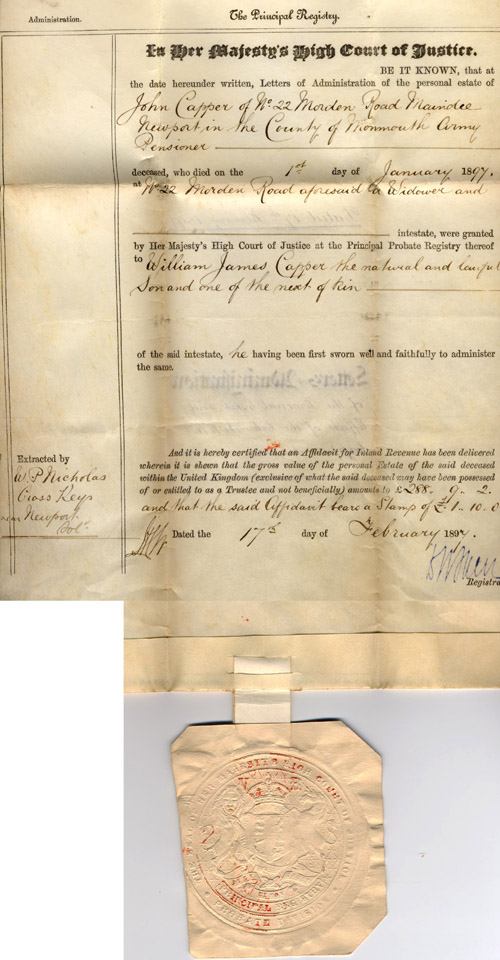 Administration.
The Principal Registry.
In Her Majesty's High Court of Justice.
BE IT KNOWN, that at
the date hereunder written, Letters of Administration of the personal estate of
John Capper of No. 22 Morden Road Maindee
Newport in the County of Monmouth Army
Pensioner
deceased, who died on the 1st day of January 1897.
at No. 22 Morden Road aforesaid a Widower and
intestate, were granted
by Her Majesty's High Court of Justice at the Principal Probate Registry thereof
to William James Capper the natural and lawful
Son and one of the next of kin
of the said intestate, he having been first sworn well and faithfully to administer
the same.
And it is hereby certified that an Affidavit for Inland Revenue has been delivered
wherein it is shewn that the gross value of the personal Estate of the said deceased
within the United Kingdom (exclusive of what the said deceased may have been possessed
of or entitled to as a Trustee and not beneficially) amounts to £288. 9. 2.
and that the said Affidavit bears a Stamp of £1. 10. 0
Dated the 17th day of February 1897.
Registra
Extracted by
W. P. Nicholas
Cross Keys
near Newport
Solr.
HIGH COURT OF
PRINCIPAL
PROBATE